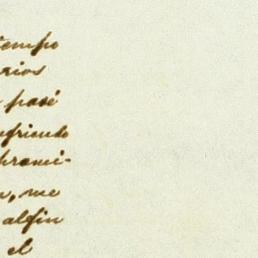 tiempo
rios
pasé
ufriendo
n, me
al fin
el